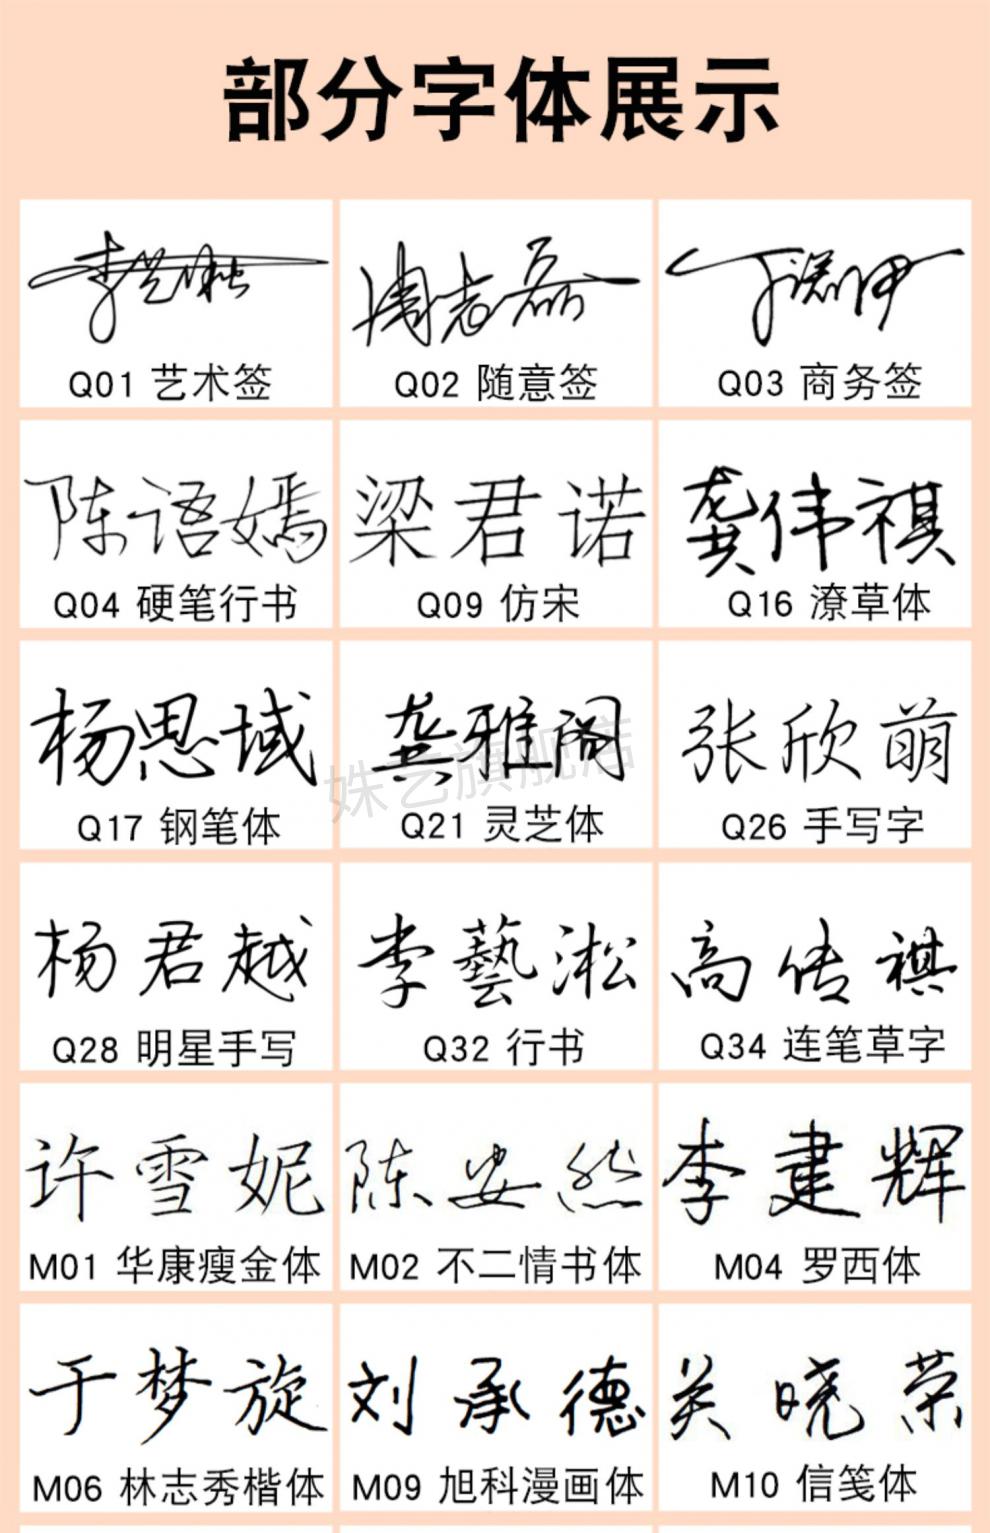 部分字体展示
Q01 艺术签
周志磊
Q02 随意签
Q03 商务签
陈语嫣
Q04 硬笔行书
梁君诺
Q09 仿宋
龚伟祺
Q16 潦草体
杨思域
Q17 钢笔体
龚雅阁
Q21 灵芝体
张欣萌
Q26 手写字
姝艺旗舰店
杨君越
Q28 明星手写
李藝淞
Q32 行书
高传祺
Q34 连笔草字
许雪妮
M01 华康瘦金体
陈安然
M02 不二情书体
李建辉
M04 罗西体
于梦旋
M06 林志秀楷体
刘承德
M09 旭科漫画体
关晓荣
M10 信笺体